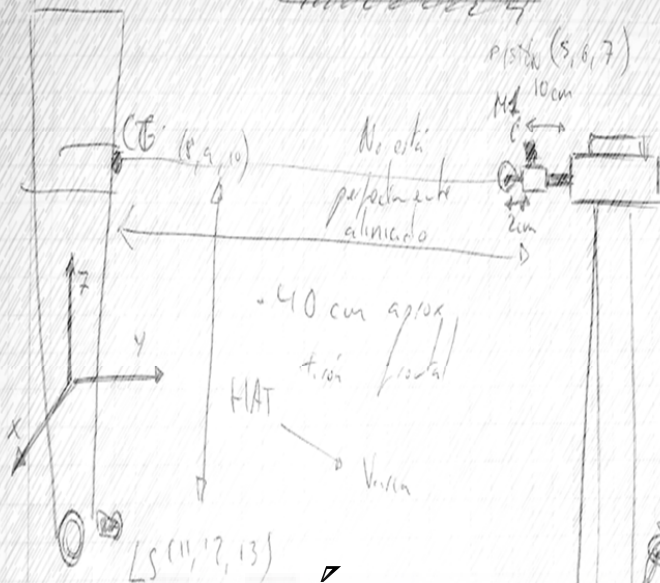 pistón (5, 6, 7)
10cm
M1
CT
(8, 9, 10)
No está
perfectamente
aliniado
2cm
40 cm aprox
tirón frontal
Z
Y
X
HAT
Varía
LS (11, 12, 13)